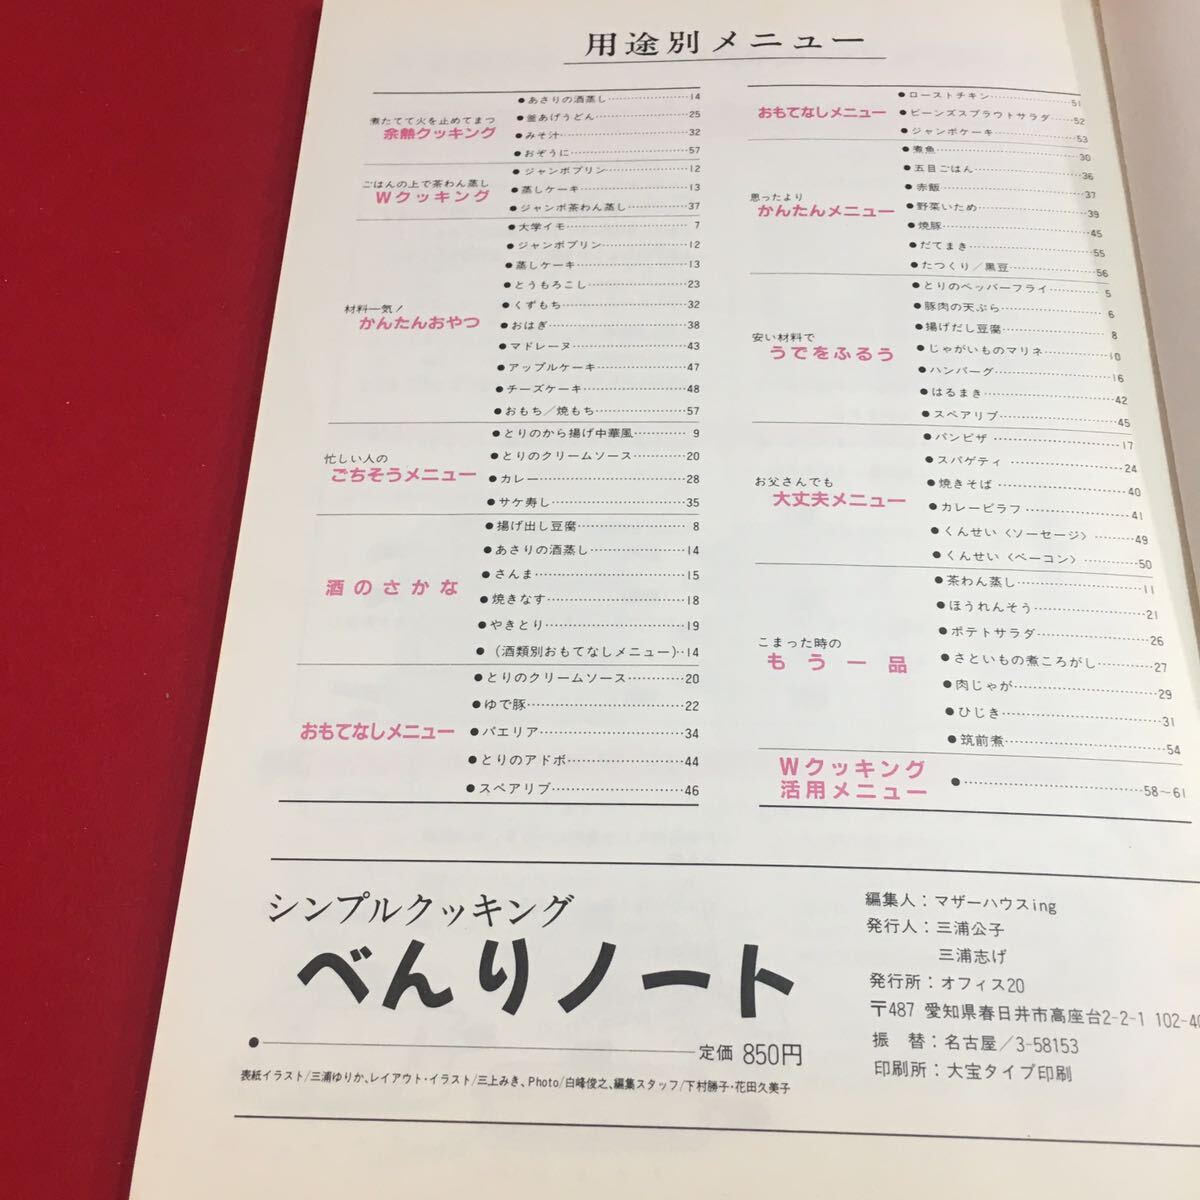 用途別メニュー
煮たてて火を止めてまつ
余熱クッキング
●あさりの酒蒸し……14
●釜あげうどん……25
●みそ汁……32
●おぞうに……57
ごはんの上で茶わん蒸し
Wクッキング
●ジャンボプリン……12
●蒸しケーキ……13
●ジャンボ茶わん蒸し……37
材料一気！
かんたんおやつ
●大学イモ……7
●ジャンボプリン……12
●蒸しケーキ……13
●とうもろこし……23
●くずもち……32
●おはぎ……38
●マドレーヌ……43
●アップルケーキ……47
●チーズケーキ……48
●おもち／焼もち……57
忙しい人の
ごちそうメニュー
●とりのから揚げ中華風……9
●とりのクリームソース……20
●カレー……28
●サケ寿し……35
酒のさかな
●揚げ出し豆腐……8
●あさりの酒蒸し……14
●さんま……15
●焼きなす……18
●やきとり……19
●（酒類別おもてなしメニュー）‥14
おもてなしメニュー
●とりのクリームソース……20
●ゆで豚……22
●パエリア……34
●とりのアドボ……44
●スペアリブ……46
おもてなしメニュー
●ローストチキン……51
●ビーンズスプラウトサラダ……52
●ジャンボケーキ……53
思ったより
かんたんメニュー
●煮魚……30
●五目ごはん……36
●赤飯……37
●野菜いため……39
●焼豚……45
●だてまき……55
●たつくり／黒豆……56
安い材料で
うでをふるう
●とりのペッパーフライ……5
●豚肉の天ぷら……6
●揚げだし豆腐……8
●じゃがいものマリネ……10
●ハンバーグ……16
●はるまき……42
●スペアリブ……45
お父さんでも
大丈夫メニュー
●パンピザ……17
●スパゲティ……24
●焼きそば……40
●カレーピラフ……41
●くんせい〈ソーセージ〉……49
●くんせい〈ベーコン〉……50
こまった時の
もう一品
●茶わん蒸し……11
●ほうれんそう……21
●ポテトサラダ……26
●さといもの煮ころがし……27
●肉じゃが……29
●ひじき……31
●筑前煮……54
Wクッキング
活用メニュー
●……58〜61
シンプルクッキング
べんりノート
●定価 850円
表紙イラスト/三浦ゆりか､レイアウト・イラスト/三上みき､Photo/白峰俊之､編集スタッフ/下村勝子・花田久美子
編集人：マザーハウスing
発行人：三浦公子
三浦志げ
発行所：オフィス20
〒487 愛知県春日井市高座台2-2-1 102-40
振　替：名古屋／3-58153
印刷所：大宝タイプ印刷